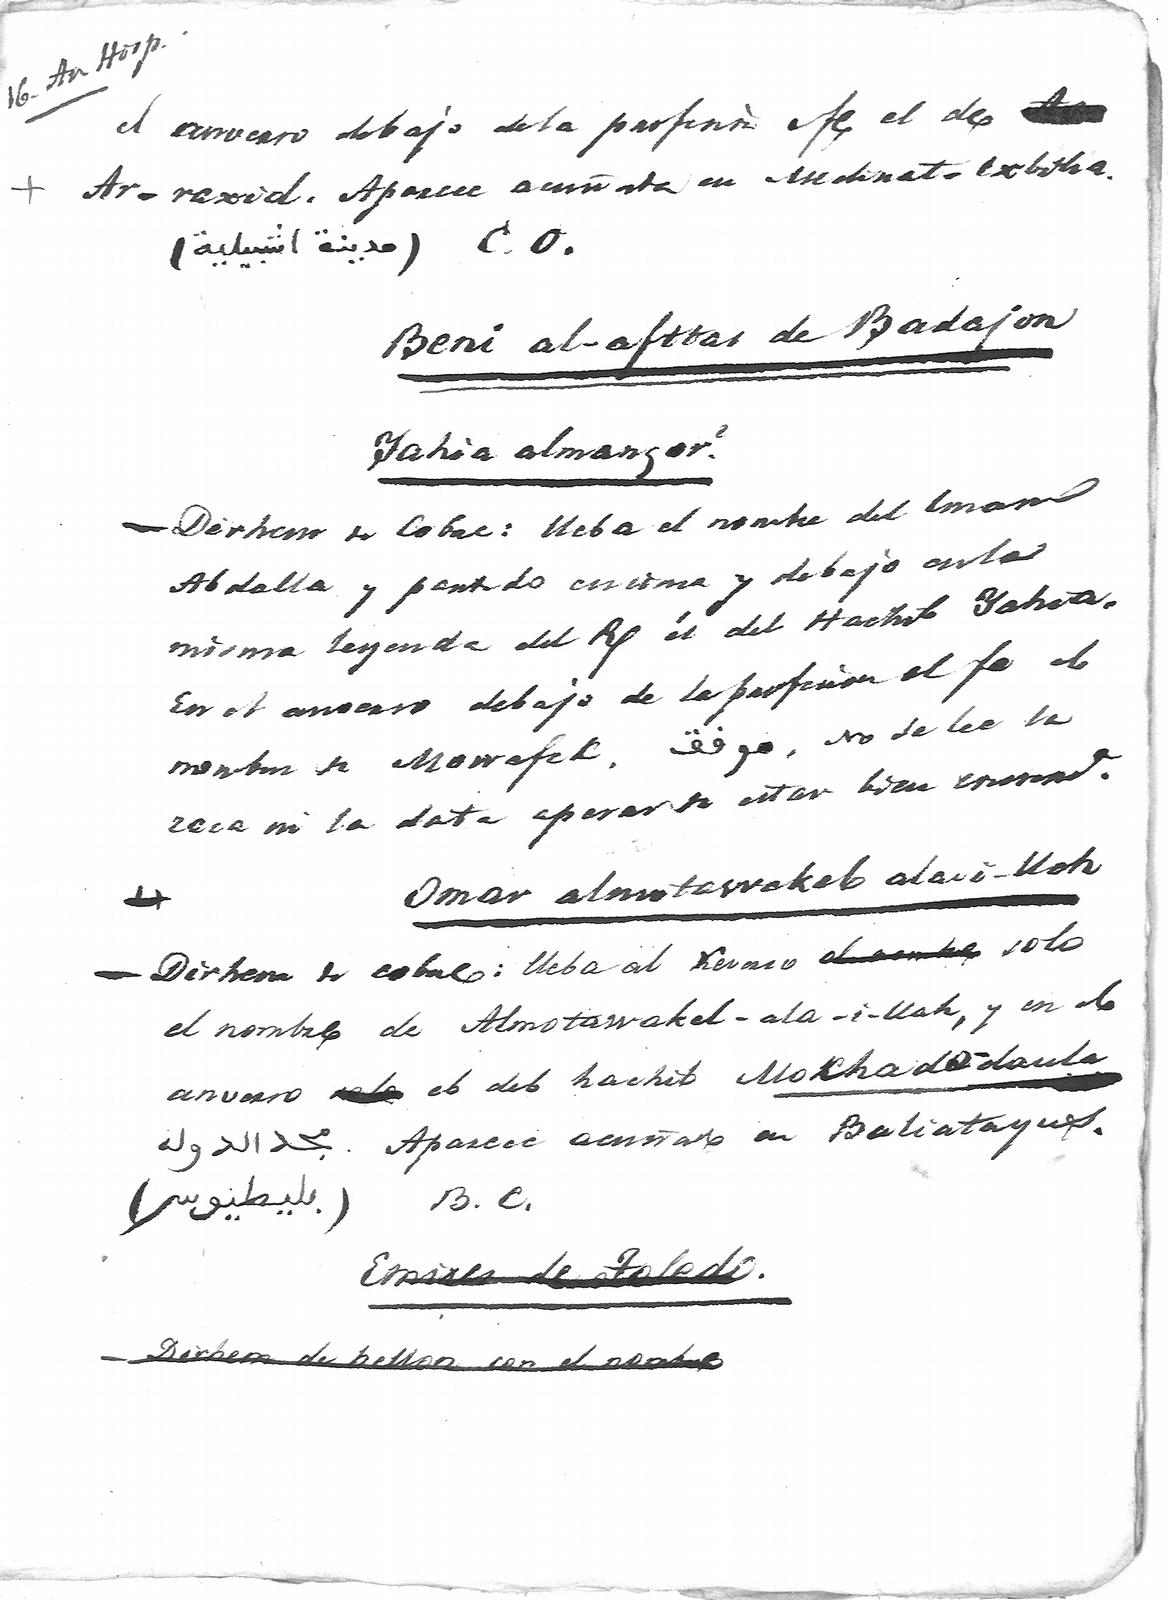 16- Ar Hisp.
el anverso debajo de la profesión fe el de
Ar-raxid. Aparece acuñada en Medinat-exbilia.
(مدينة اشبيلية) C. O.
Beni al-afttas de Badajoz
Yahia almanzor?
- Dirhem de Cobre: lleba el nombre del Iman
Abdalla y partido encima y debajo en la
misma leyenda del Rº el del Hachib Yahia.
En el anverso debajo de la profesion de fe el
nombre de Mowafek. موفق, No se lee la
zeca ni la data apesar de estar bien conservdº.
Omar almotawakel alai-llah
- Dirhem de cobre: lleba al Reverso el nombre solo
el nombre de Almotawakel-ala-i-llah, y en el
anverso solo el del hachib Mokhad-daula
مجد الدوله. Aparece acuñado en Baliatayus.
(بليطيوس) B. C.
Emires de Toledo.
- Dirhem de bellon con el nombre